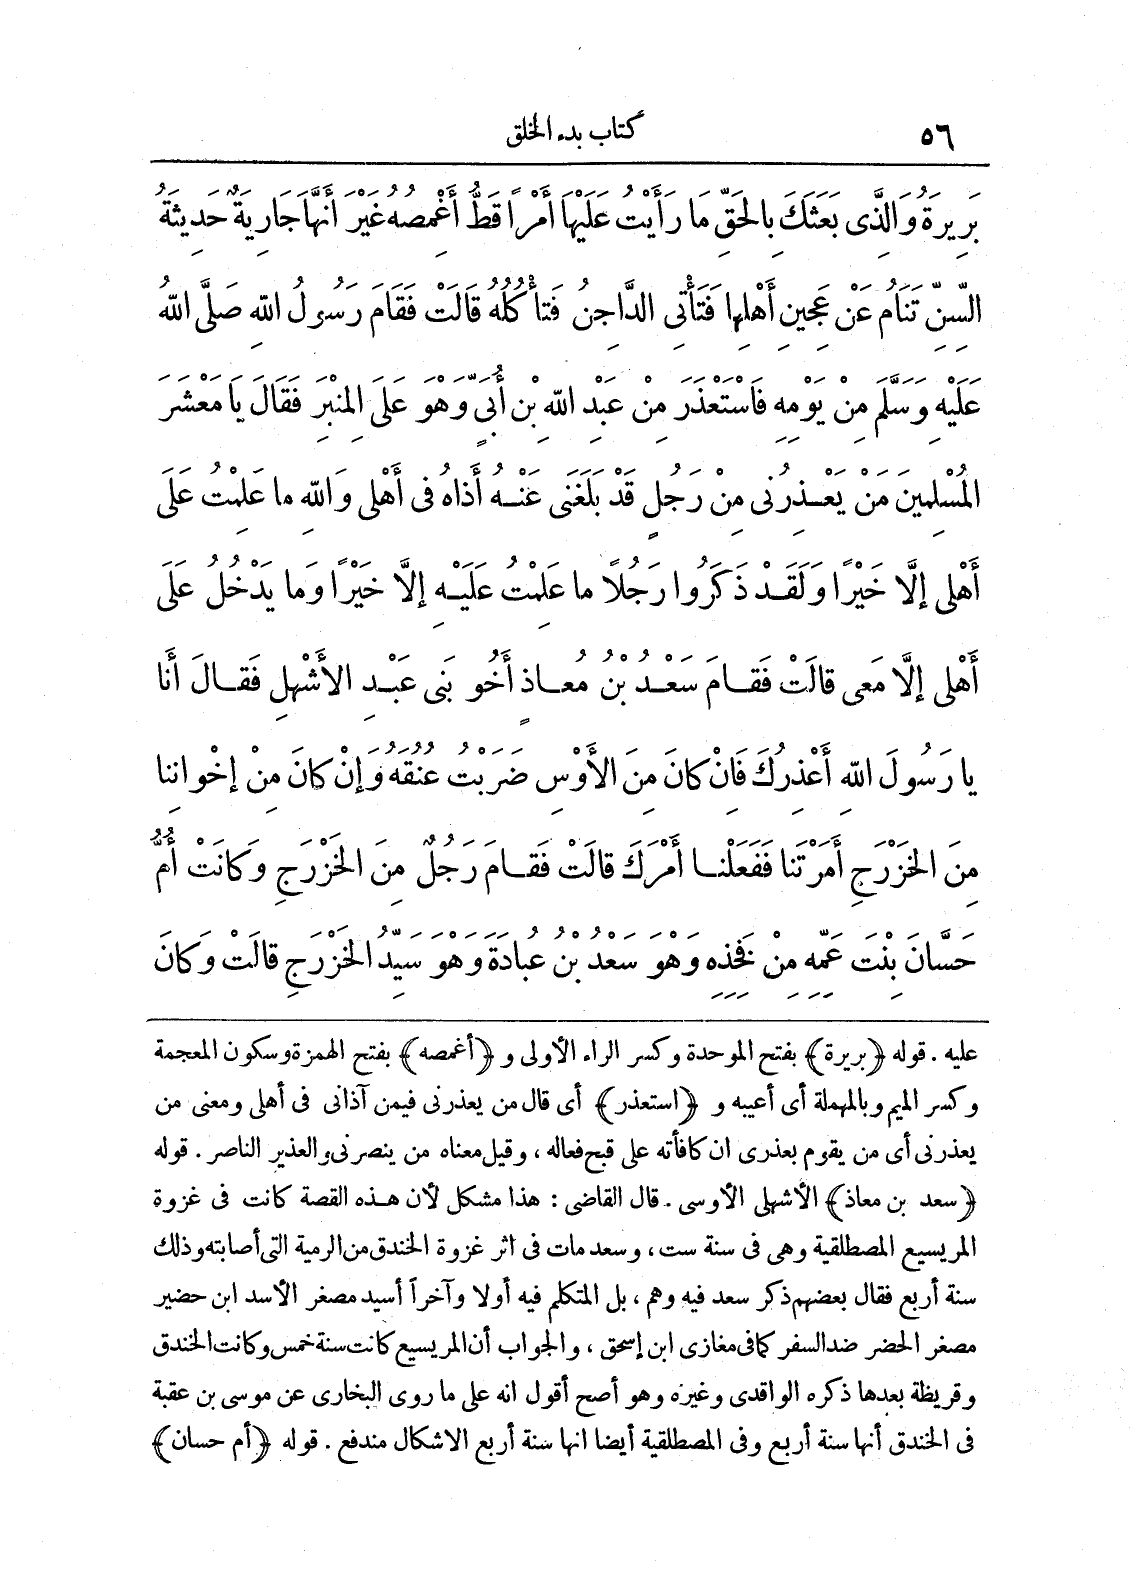 ٥٦ كتاب بدء الخلق
بَرِيرَةُ وَالَّذِى بَعَثَكَ بِالحَقِّ مَا رَأَيْتُ عَلَيْهَا أَمْرًا قَطُّ أَغْمِصُهُ غَيْرَ أَنَّهَا جَارِيَةٌ حَدِيثَةُ
السِّنِّ تَنَامُ عَنْ عَجِينِ أَهْلِهَا فَتَأْتِى الدَّاجِنُ فَتَأْكُلُهُ قَالَتْ فَقَامَ رَسُولُ اللهِ صَلَّى اللهُ
عَلَيْهِ وَسَلَّمَ مِنْ يَوْمِهِ فَاسْتَعْذَرَ مِنْ عَبْدِ اللهِ بْنِ أُبَىٍّ وَهْوَ عَلَى المِنْبَرِ فَقَالَ يَا مَعْشَرَ
المُسْلِمِينَ مَنْ يَعْذِرُنِى مِنْ رَجُلٍ قَدْ بَلَغَنِى عَنْهُ أَذَاهُ فى أَهْلِى وَاللهِ ما عَلِمْتُ عَلَى
أَهْلِى إلَّا خَيْرًا وَلَقَدْ ذَكَرُوا رَجُلًا ما عَلِمْتُ عَلَيْهِ إلَّا خَيْرًا وَما يَدْخُلُ عَلَى
أَهْلِى إلَّا مَعِى قالَتْ فَقامَ سَعْدُ بْنُ مُعاذٍ أَخُو بَنِى عَبْدِ الأَشْهَلِ فَقالَ أَنَا
يا رَسُولَ اللهِ أَعْذِرُكَ فَانْ كانَ مِنَ الأَوْسِ ضَرَبْتُ عُنُقَهُ وَإنْ كانَ مِنْ إخْوانِنا
مِنَ الخَزْرَجِ أَمَرْتَنا فَفَعَلْنا أَمْرَكَ قالَتْ فَقامَ رَجُلٌ مِنَ الخَزْرَجِ وَكانَتْ أُمُّ
حَسَّانَ بِنْتَ عَمِّهِ مِنْ فَخِذِهِ وَهْوَ سَعْدُ بْنُ عُبادَةَ وَهْوَ سَيِّدُ الخَزْرَجِ قالَتْ وَكانَ
عليه . قوله ﴿بريرة﴾ بفتح الموحدة وكسر الراء الأولى و ﴿أغمصه﴾ بفتح الهمزة وسكون المعجمة
وكسر الميم وبالمهملة أى أعيبه و ﴿استعذر﴾ أى قال من يعذرنى فيمن آذانى فى أهلى ومعنى من
يعذرنى أى من يقوم بعذرى ان كافأته على قبح فعاله ، وقيل معناه من ينصرنى والعذير الناصر . قوله
﴿سعد بن معاذ﴾ الأشهلى الأوسى . قال القاضى : هذا مشكل لأن هذه القصة كانت فى غزوة
المريسيع المصطلقية وهى فى سنة ست ، وسعد مات فى اثر غزوة الخندق من الرمية التى أصابته وذلك
سنة أربع فقال بعضهم ذكر سعد فيه وهم ، بل المتكلم فيه أولا وآخراً أسيد مصغر الأسد ابن حضير
مصغر الحضر ضد السفر كما فى مغازى ابن إسحق ، والجواب أن المريسيع كانت سنة خمس وكانت الخندق
وقريظة بعدها ذكره الواقدى وغيره وهو أصح أقول انه على ما روى البخارى عن موسى بن عقبة
فى الخندق أنها سنة أربع وفى المصطلقية أيضا انها سنة أربع الاشكال مندفع . قوله ﴿أم حسان﴾